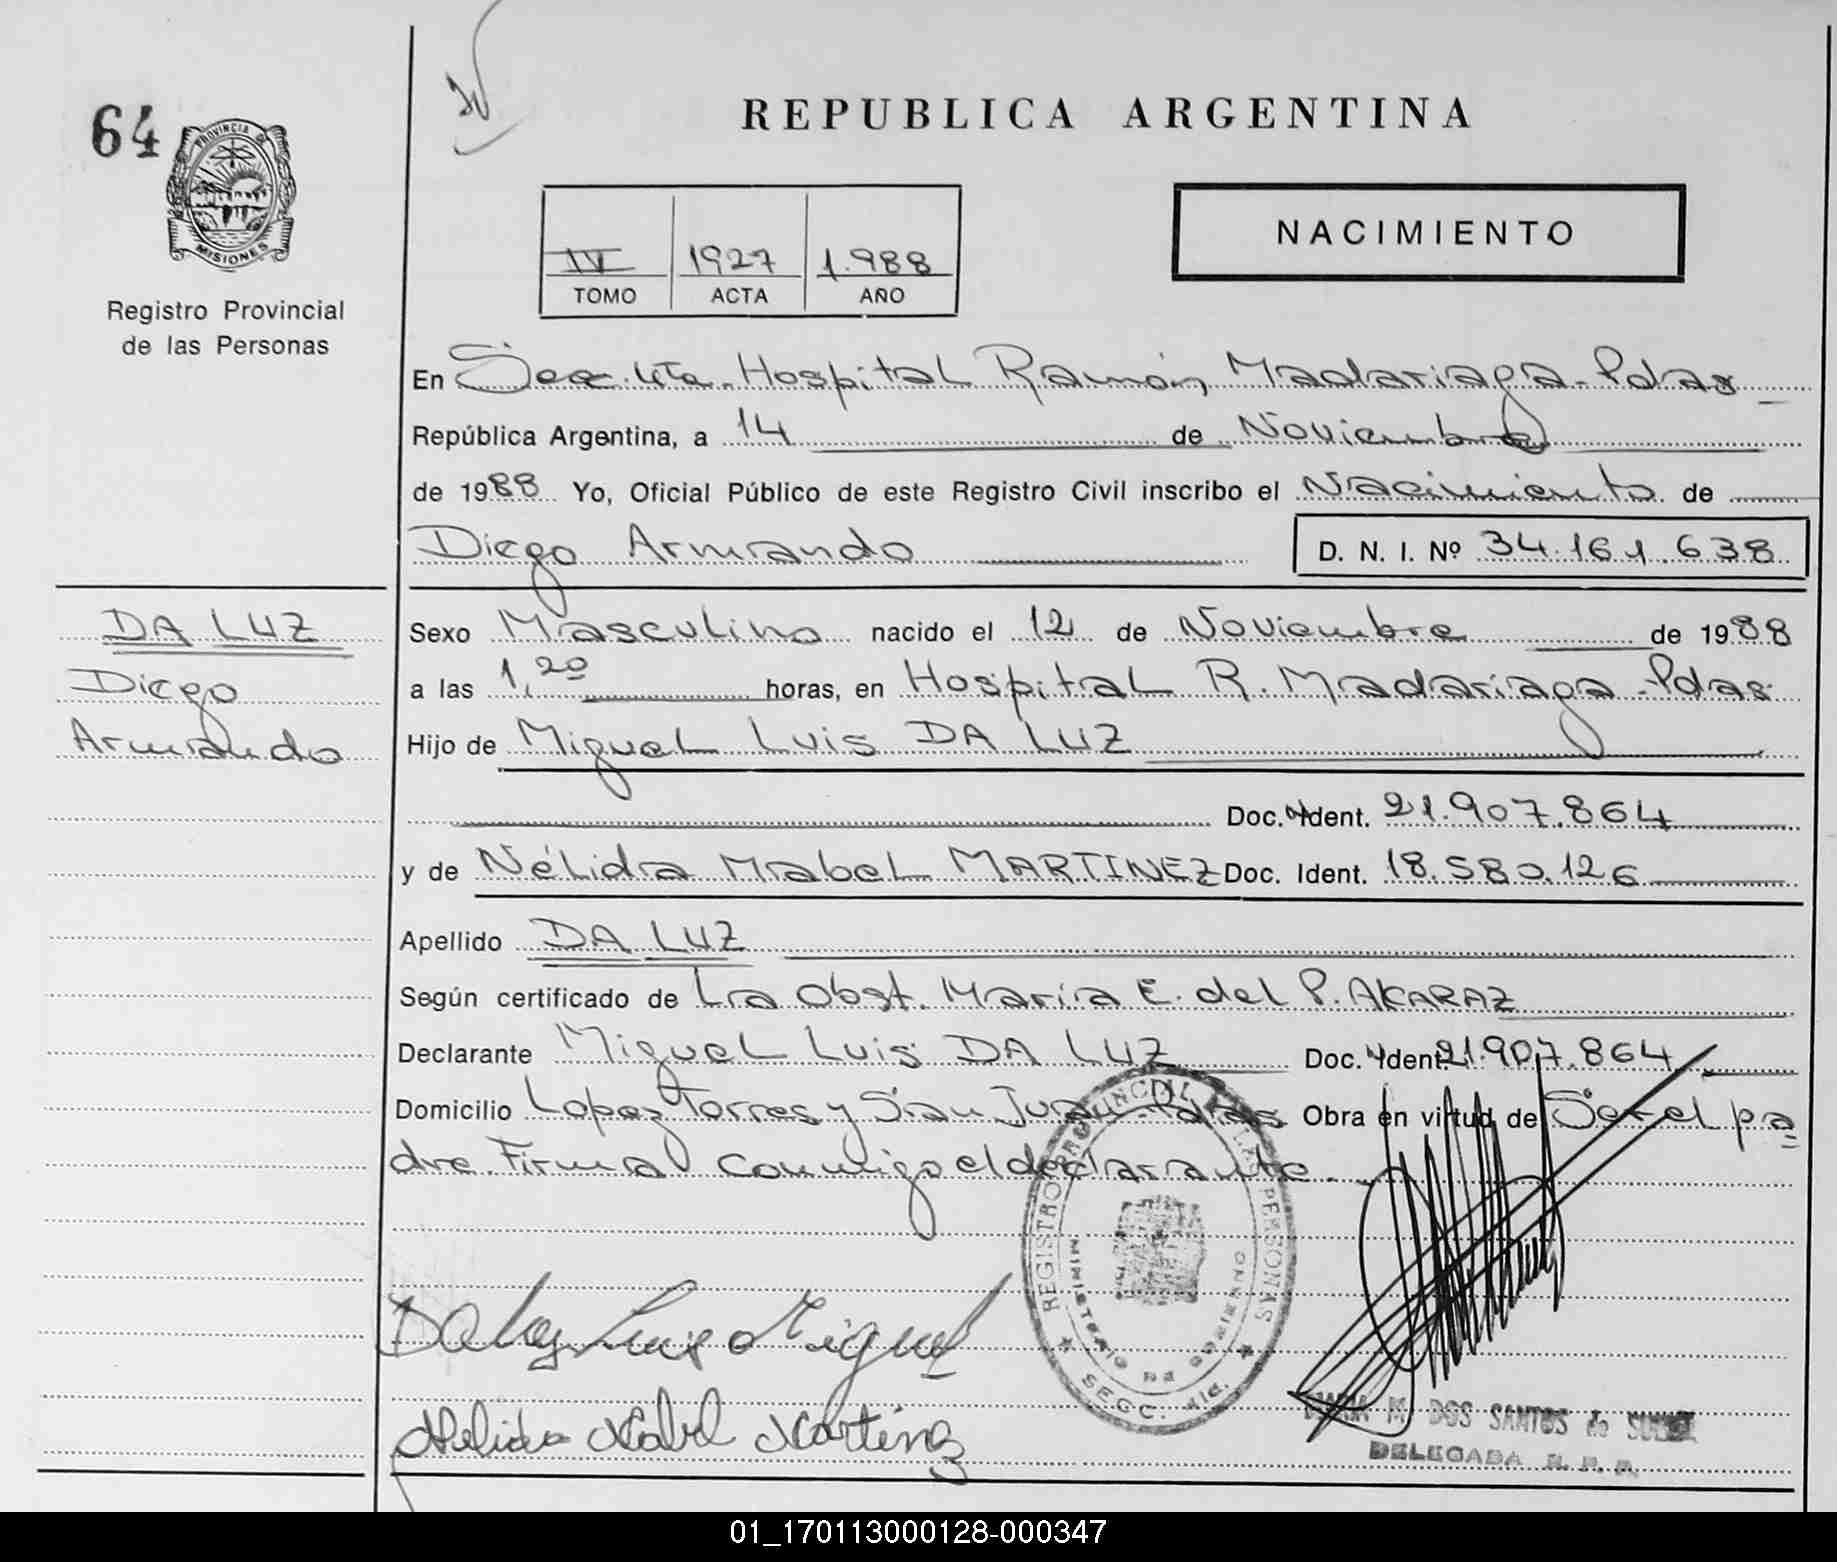 64
PROVINCIA DE
MISIONES
Registro Provincial
de las Personas
REPUBLICA ARGENTINA
NACIMIENTO
IV 1927 1.988
TOMO ACTA AÑO
En Secc. 4ta. Hospital Ramón Madariaga - Pdas
República Argentina, a 14 de Noviembre
de 1988 Yo, Oficial Público de este Registro Civil inscribo el Nacimiento de
Diego Armando D. N. I. Nº 34.161.638
DA LUZ
Diego
Armando
Sexo Masculino nacido el 12 de Noviembre de 1988
a las 1,20 horas, en Hospital R. Madariaga - Pdas
Hijo de Miguel Luis DA LUZ
Doc. Ident. 21.907.864
y de Nélida Mabel MARTINEZ Doc. Ident. 18.580.126
Apellido DA LUZ
Según certificado de La Obst. María E. del P. ALCARAZ
Declarante Miguel Luis DA LUZ Doc. Ident. 21.907.864
Domicilio Lopez Torres y San Juan - Pdas Obra en virtud de Ser el pa
dre. Firma conmigo el declarante.
REGISTRO PROVINCIAL DE LAS PERSONAS
MINISTERIO DE GOBIERNO
SECC. 4ta.
Da Luz Luis Miguel
Nelida Mabel Martinez
M. DOS SANTOS de
DELEGADA R. P. P.
01_170113000128-000347